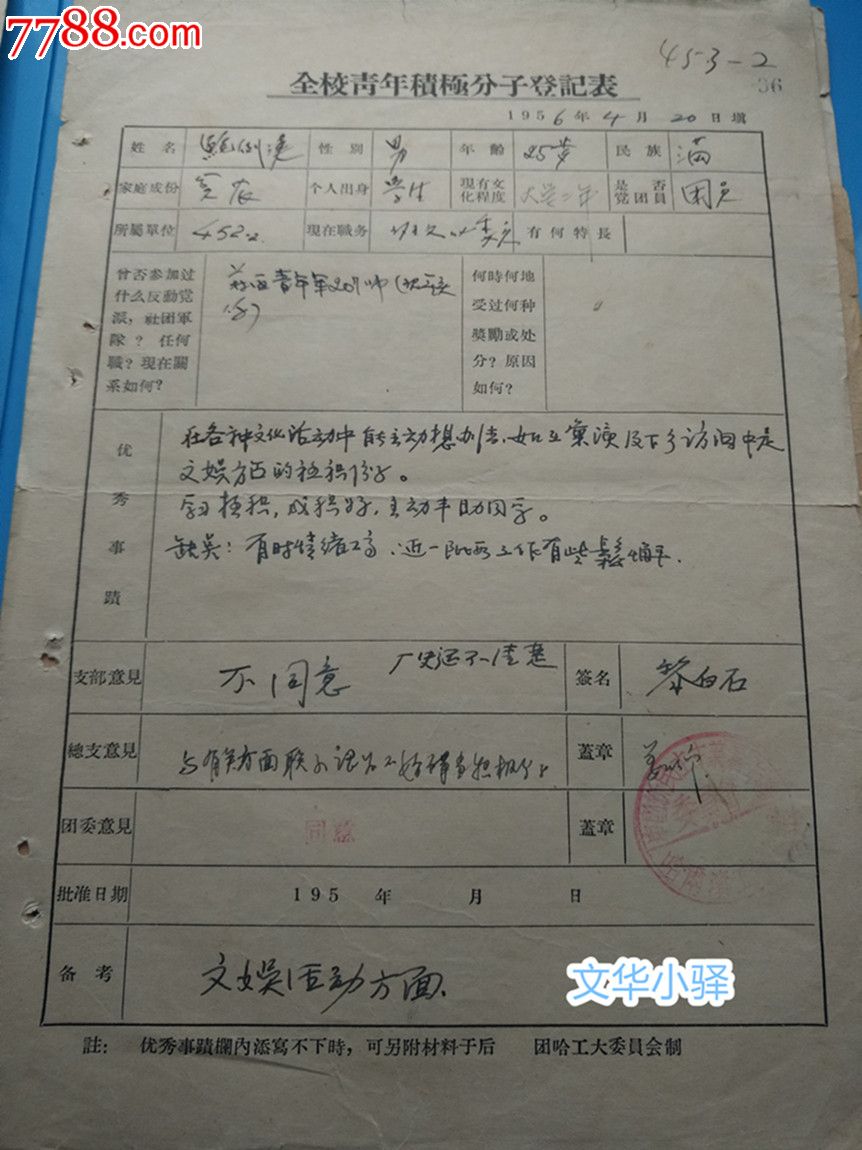 7788.com
中国收藏热线
453-2
36
全校青年積極分子登記表
1956年4月20日填
姓名 性別 男 年齡 25岁 民族 满
家庭成份 贫农 个人出身 学生 現有文化程度 大学二年 是否党团員 团员
所屬單位 452 現在職务 有何特長
曾否参加过什么反動党派，社团軍隊？任何職？現在關系如何？ 青年军207师
何時何地受过何种奬勵或处分？原因如何？
优秀事蹟
在各种文化活动中能主动想办法，如汇演及下乡访问中是
文娱方面的积极分子。
学习积极，成绩好，主动帮助同学。
缺点：有时情绪不高，近一阶段工作有些鬆懈。
支部意見 不同意 历史还不清楚 簽名 黎白石
總支意見 与有关方面联系 蓋章
团委意見 同意 蓋章
批准日期 195 年 月 日
备考 文娱活动方面.
文华小驿
註： 优秀事蹟欄內添寫不下時，可另附材料于后 团哈工大委員会制